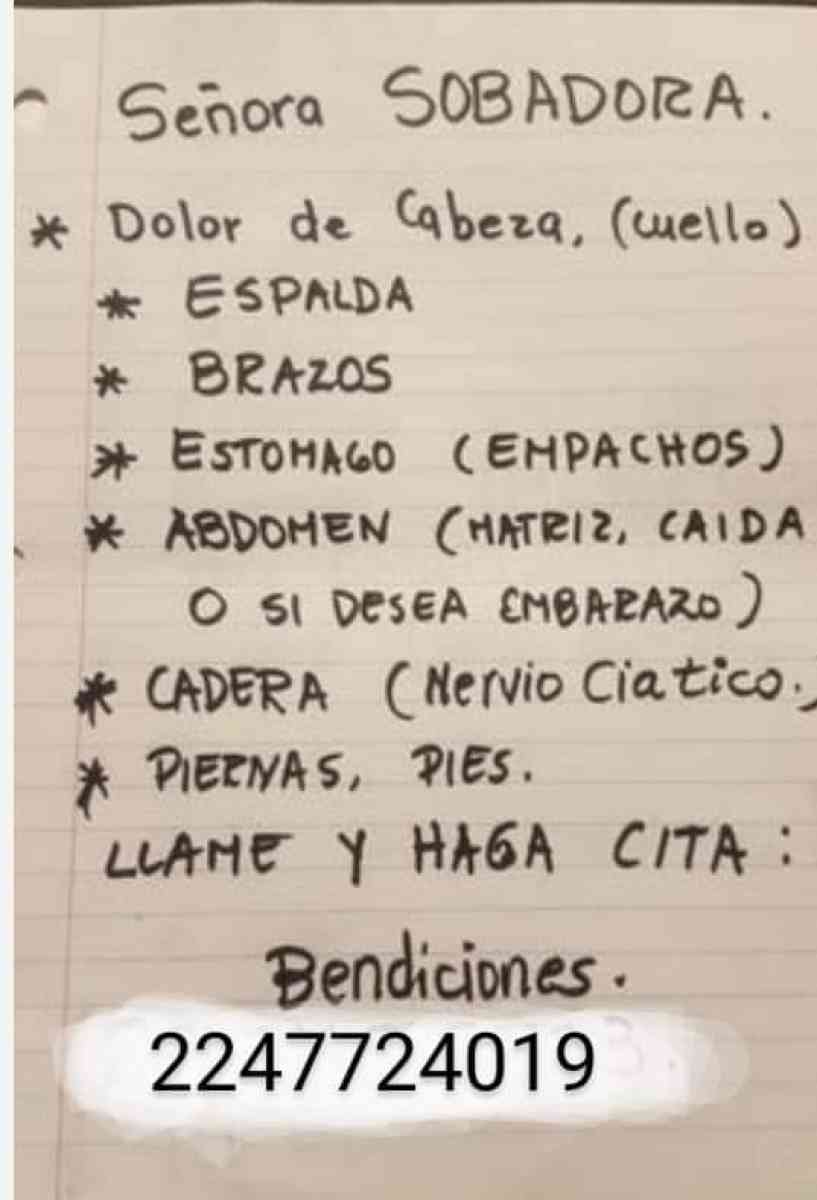 Señora SOBADORA.
* Dolor de Cabeza, (cuello)
* ESPALDA
* BRAZOS
* ESTOMAGO (EMPACHOS)
* ABDOMEN (MATRIZ, CAIDA
O SI DESEA EMBARAZO)
* CADERA (Nervio Ciatico.)
* PIERNAS, PIES.
LLAME Y HAGA CITA:
Bendiciones.
2247724019